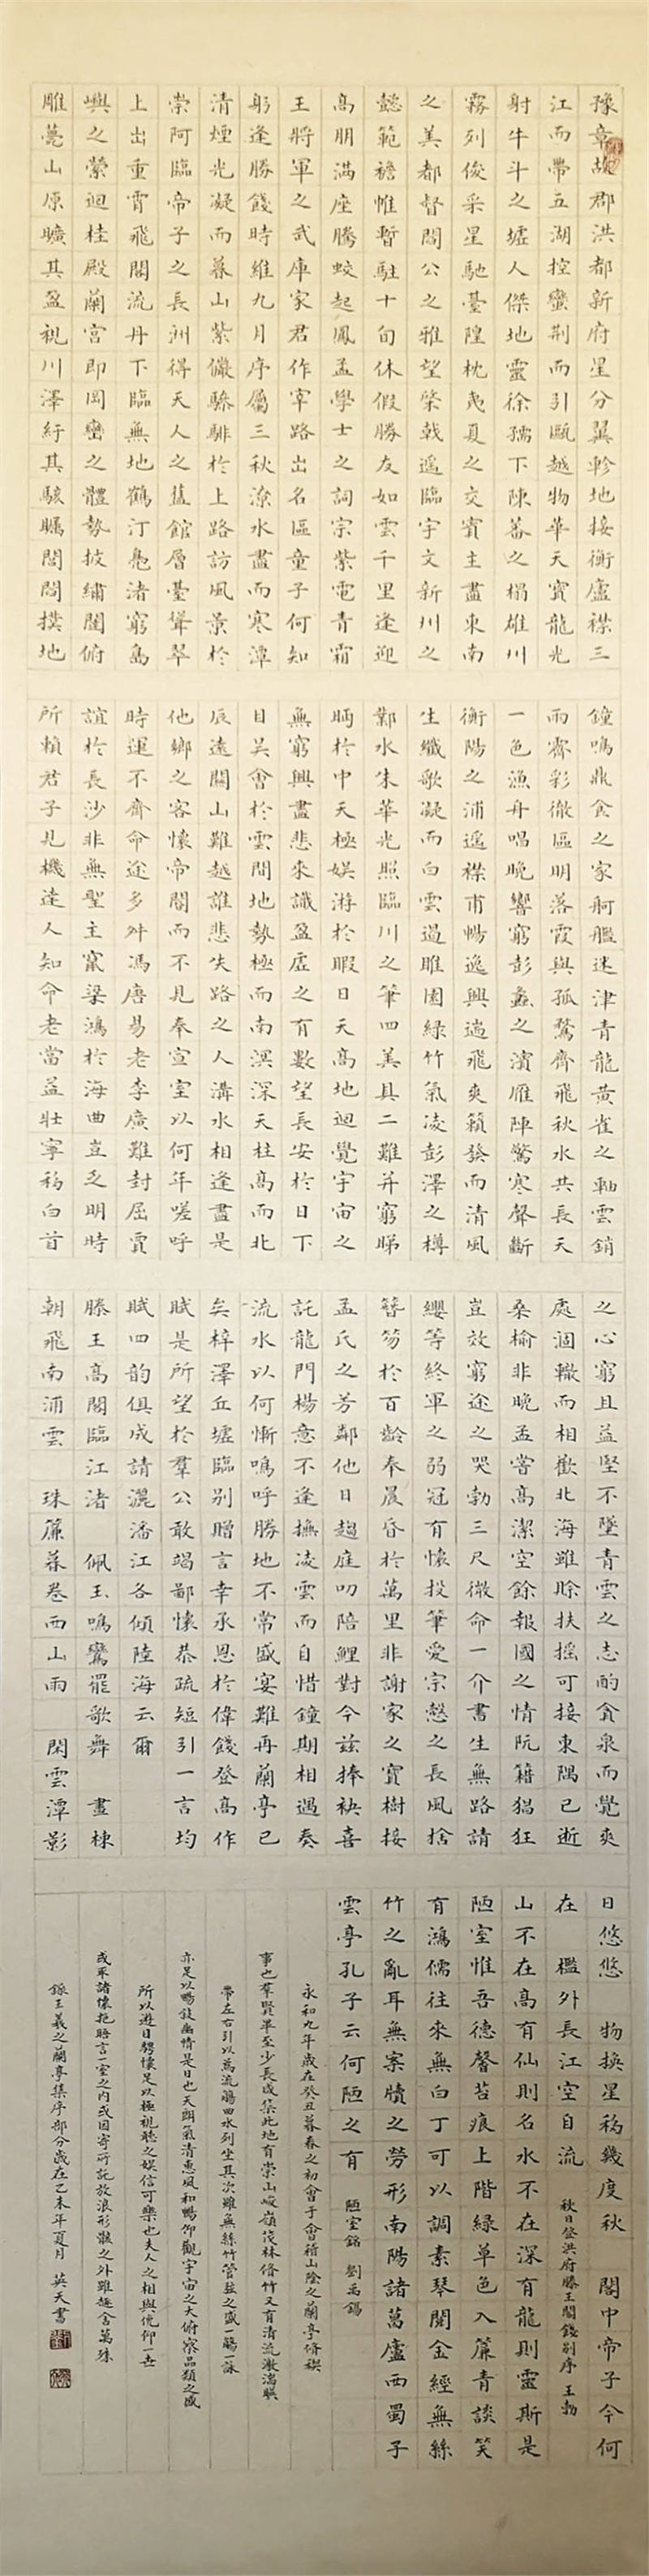 豫章故郡洪都新府星分翼軫地接衡廬襟三
江而帶五湖控蠻荊而引甌越物華天寶龍光
射牛斗之墟人傑地靈徐孺下陳蕃之榻雄川
霧列俊采星馳臺隍枕夷夏之交賓主盡東南
之美都督閻公之雅望棨戟遙臨宇文新川之
懿範襜帷暫駐十旬休假勝友如雲千里逢迎
高朋滿座騰蛟起鳳孟學士之詞宗紫電青霜
王將軍之武庫家君作宰路出名區童子何知
躬逢勝餞時維九月序屬三秋潦水盡而寒潭
清煙光凝而暮山紫儼驂騑於上路訪風景於
崇阿臨帝子之長洲得天人之舊館層臺聳翠
上出重霄飛閣流丹下臨無地鶴汀鳧渚窮島
嶼之縈迴桂殿蘭宮即岡巒之體勢披繡闥俯
雕甍山原曠其盈視川澤紆其駭矚閭閻撲地
鐘鳴鼎食之家舸艦迷津青龍黃雀之軸雲銷
雨霽彩徹區明落霞與孤鶩齊飛秋水共長天
一色漁舟唱晚響窮彭蠡之濱雁陣驚寒聲斷
衡陽之浦遙襟甫暢逸興遄飛爽籟發而清風
生纖歌凝而白雲遏睢園綠竹氣凌彭澤之樽
鄴水朱華光照臨川之筆四美具二難并窮睇
眄於中天極娛游於暇日天高地迥覺宇宙之
無窮興盡悲來識盈虛之有數望長安於日下
目吳會於雲間地勢極而南溟深天柱高而北
辰遠關山難越誰悲失路之人溝水相逢盡是
他鄉之客懷帝閽而不見奉宣室以何年嗟呼
時運不齊命途多舛馮唐易老李廣難封屈賈
誼於長沙非無聖主竄梁鴻於海曲豈乏明時
所賴君子見機達人知命老當益壯寧移白首
之心窮且益堅不墜青雲之志酌貪泉而覺爽
處涸轍而相歡北海雖賒扶搖可接東隅已逝
桑榆非晚孟嘗高潔空餘報國之情阮籍猖狂
豈效窮途之哭勃三尺微命一介書生無路請
纓等終軍之弱冠有懷投筆愛宗慤之長風捨
簪笏於百齡奉晨昏於萬里非謝家之寶樹接
孟氏之芳鄰他日趨庭叨陪鯉對今茲捧袂喜
託龍門楊意不逢撫凌雲而自惜鐘期相遇奏
流水以何慚嗚呼勝地不常盛宴難再蘭亭已
矣梓澤丘墟臨別贈言幸承恩於偉餞登高作
賦是所望於羣公敢竭鄙懷恭疏短引一言均
賦四韵俱成請灑潘江各傾陸海云爾
滕王高閣臨江渚 佩玉鳴鸞罷歌舞 畫棟
朝飛南浦雲 珠簾暮卷西山雨 閑雲潭影
日悠悠 物換星移幾度秋 閣中帝子今何
在 檻外長江空自流 秋日登洪府滕王閣餞別序 王勃
山不在高有仙則名水不在深有龍則靈斯是
陋室惟吾德馨苔痕上階綠草色入簾青談笑
有鴻儒往來無白丁可以調素琴閱金經無絲
竹之亂耳無案牘之勞形南陽諸葛廬西蜀子
雲亭孔子云何陋之有 陋室銘 劉禹錫
永和九年歲在癸丑暮春之初會于會稽山陰之蘭亭脩禊
事也羣賢畢至少長咸集此地有崇山峻嶺茂林脩竹又有清流激湍暎
帶左右引以為流觴曲水列坐其次雖無絲竹管弦之盛一觴一詠
亦足以暢敍幽情是日也天朗氣清惠風和暢仰觀宇宙之大俯察品類之盛
所以遊目騁懷足以極視聽之娛信可樂也夫人之相與俛仰一世
或取諸懷抱晤言一室之內或因寄所託放浪形骸之外雖趣舍萬殊
錄王羲之蘭亭集序部分歲在乙未年夏月 英天書